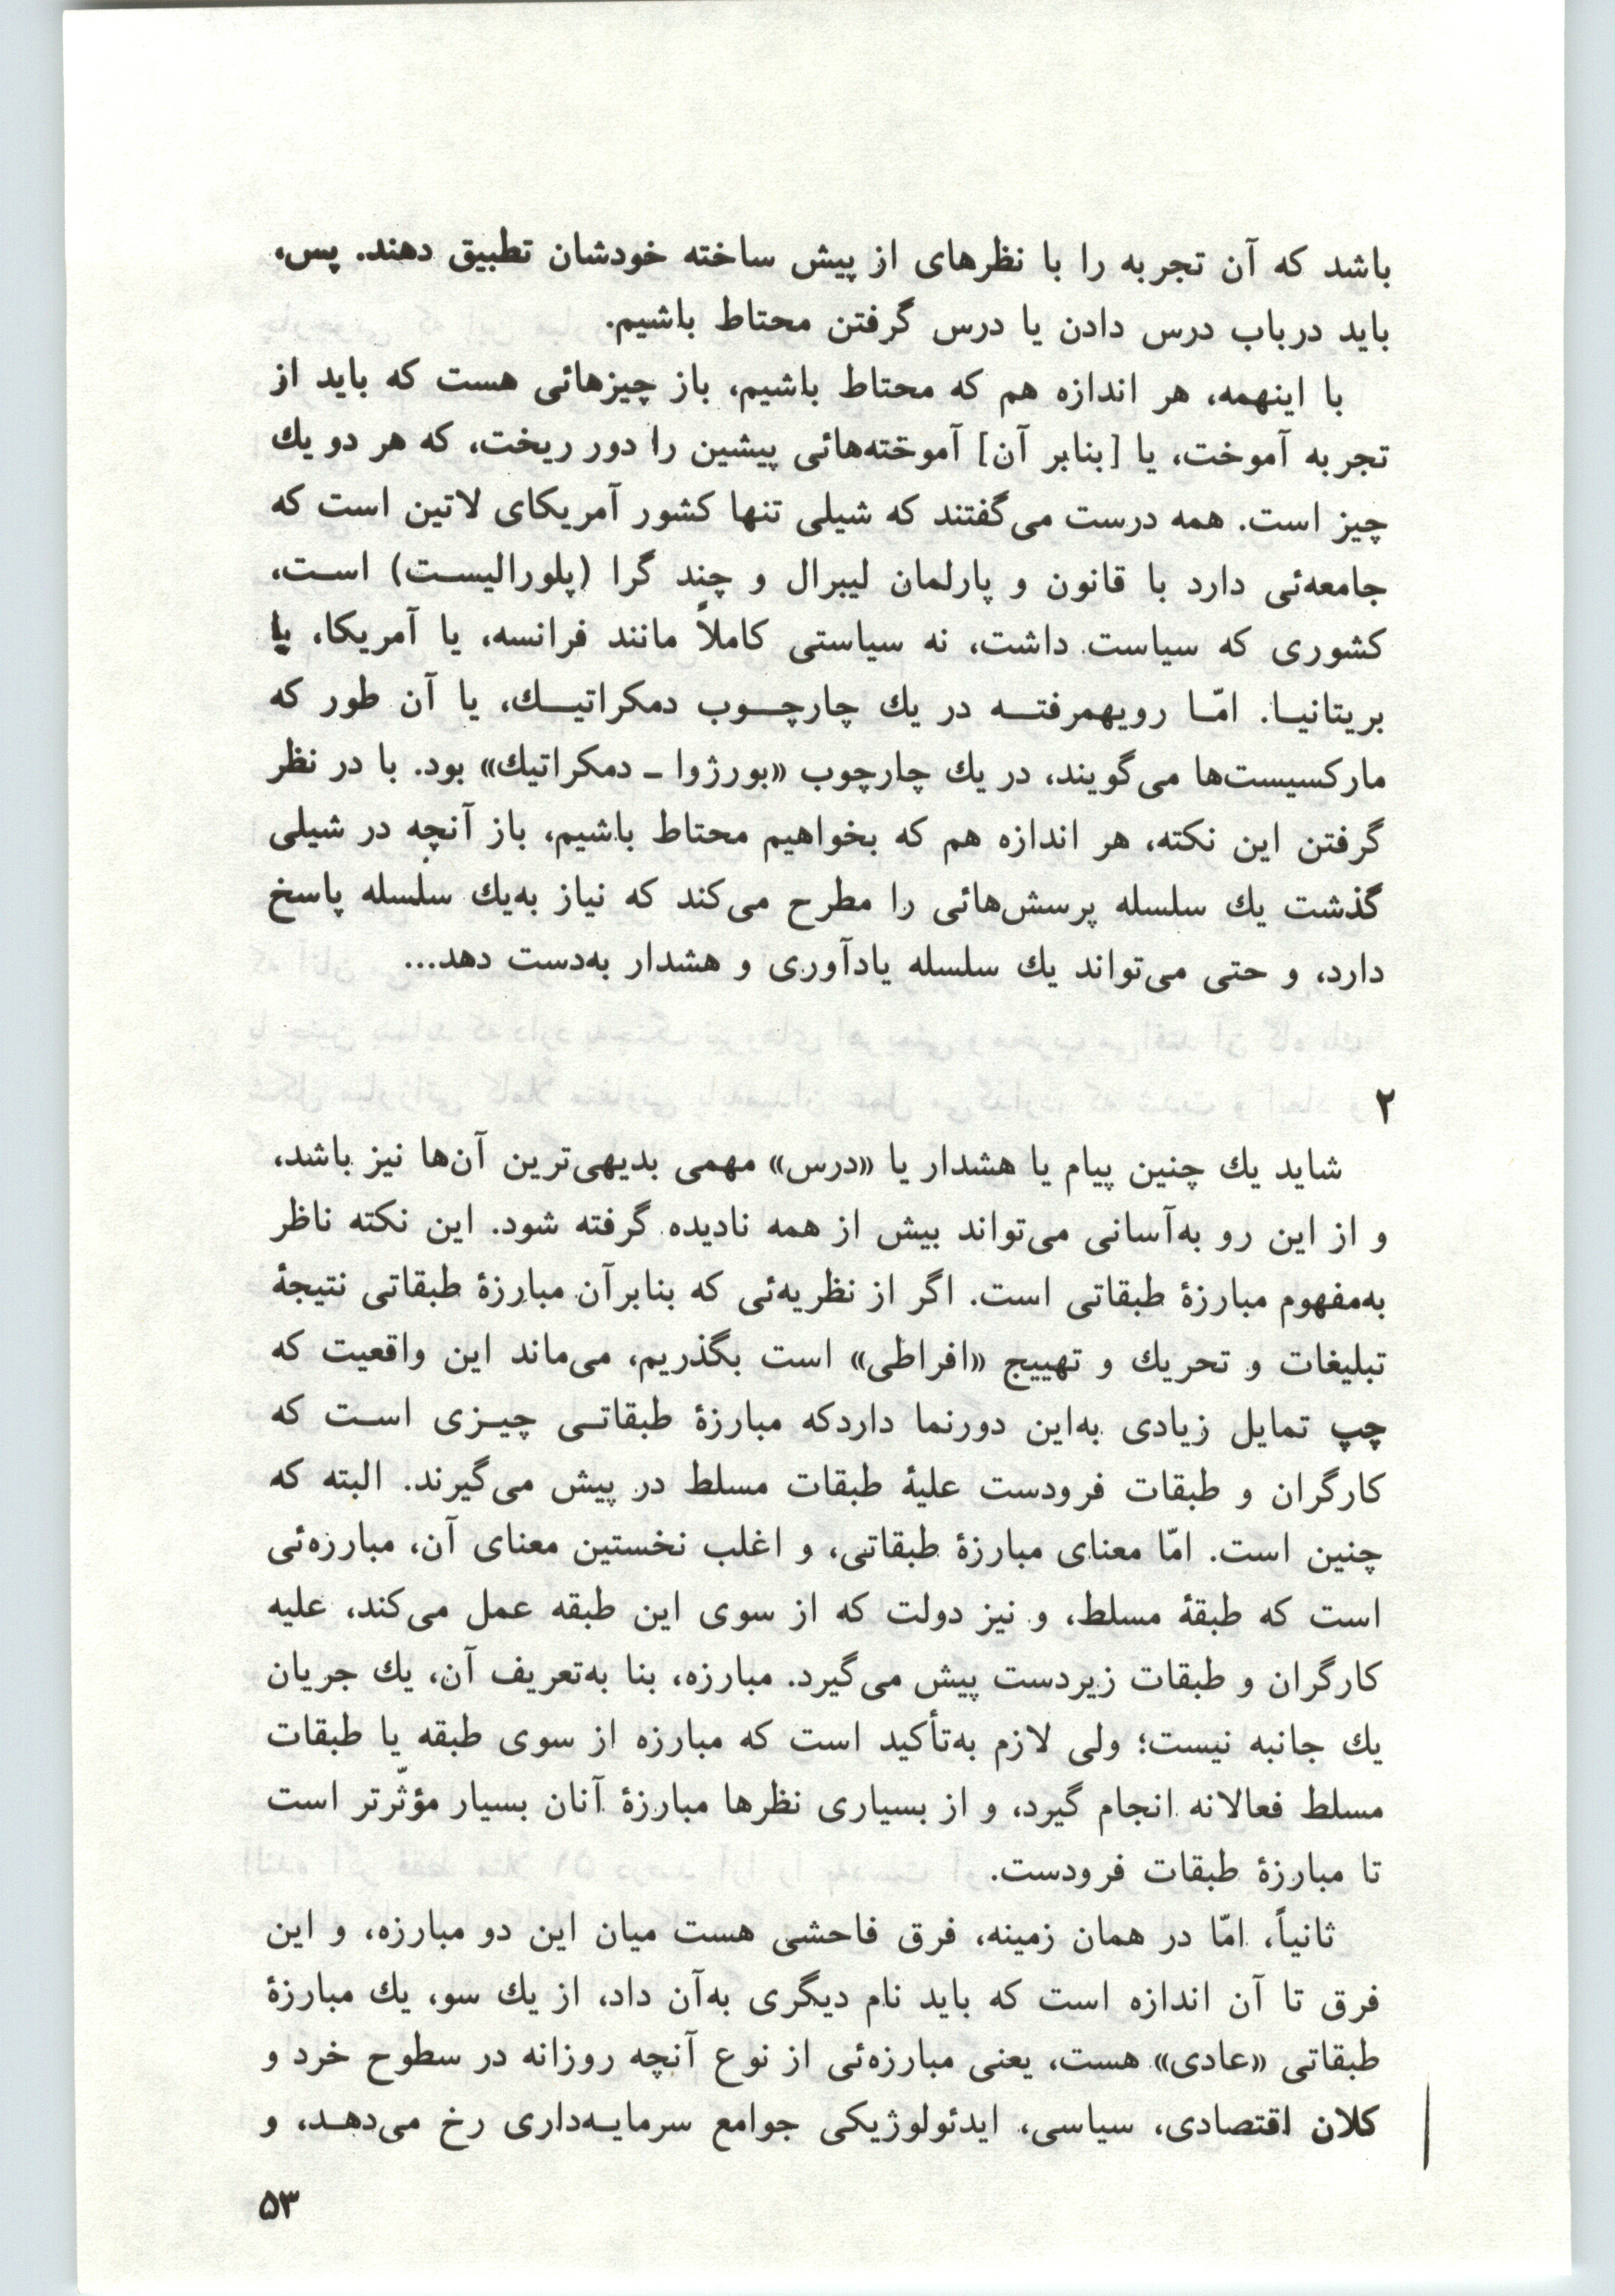 باشد که آن تجربه را با نظرهای از پیش ساخته خودشان تطبیق دهند. پس،
باید درباب درس دادن یا درس گرفتن محتاط باشیم.
با اینهمه، هر اندازه هم که محتاط باشیم، باز چیزهائی هست که باید از
تجربه آموخت، یا [بنابر آن] آموخته‌هائی پیشین را دور ریخت، که هر دو یك
چیز است. همه درست می‌گفتند که شیلی تنها کشور آمریکای لاتین است که
جامعه‌ئی دارد با قانون و پارلمان لیبرال و چند گرا (پلورالیست) است،
کشوری که سیاست داشت، نه سیاستی کاملاً مانند فرانسه، یا آمریکا، یا
بریتانیا. امّا رویهمرفته در یك چارچوب دمکراتیك، یا آن طور که
مارکسیست‌ها می‌گویند، در یك چارچوب «بورژوا ـ دمکراتیك» بود. با در نظر
گرفتن این نکته، هر اندازه هم که بخواهیم محتاط باشیم، باز آنچه در شیلی
گذشت یك سلسله پرسش‌هائی را مطرح می‌کند که نیاز به‌یك سلسله پاسخ
دارد، و حتی می‌تواند یك سلسله یادآوری و هشدار به‌دست دهد...
۲
شاید یك چنین پیام یا هشدار یا «درس» مهمی بدیهی‌ترین آن‌ها نیز باشد،
و از این رو به‌آسانی می‌تواند بیش از همه نادیده گرفته شود. این نکته ناظر
به‌مفهوم مبارزهٔ طبقاتی است. اگر از نظریه‌ئی که بنابرآن مبارزهٔ طبقاتی نتیجهٔ
تبلیغات و تحریك و تهییج «افراطی» است بگذریم، می‌ماند این واقعیت که
چپ تمایل زیادی به‌این دورنما داردکه مبارزهٔ طبقاتی چیزی است که
کارگران و طبقات فرودست علیهٔ طبقات مسلط در پیش می‌گیرند. البته که
چنین است. امّا معنای مبارزهٔ طبقاتی، و اغلب نخستین معنای آن، مبارزه‌ئی
است که طبقهٔ مسلط، و نیز دولت که از سوی این طبقه عمل می‌کند، علیه
کارگران و طبقات زیردست پیش می‌گیرد. مبارزه، بنا به‌تعریف آن، یك جریان
یك جانبه نیست؛ ولی لازم به‌تأکید است که مبارزه از سوی طبقه یا طبقات
مسلط فعالانه انجام گیرد، و از بسیاری نظرها مبارزهٔ آنان بسیار مؤثّرتر است
تا مبارزهٔ طبقات فرودست.
ثانیاً، امّا در همان زمینه، فرق فاحشی هست میان این دو مبارزه، و این
فرق تا آن اندازه است که باید نام دیگری به‌آن داد، از یك سو، یك مبارزهٔ
طبقاتی «عادی» هست، یعنی مبارزه‌ئی از نوع آنچه روزانه در سطوح خرد و
کلان اقتصادی، سیاسی، ایدئولوژیکی جوامع سرمایه‌داری رخ می‌دهد، و
۵۳